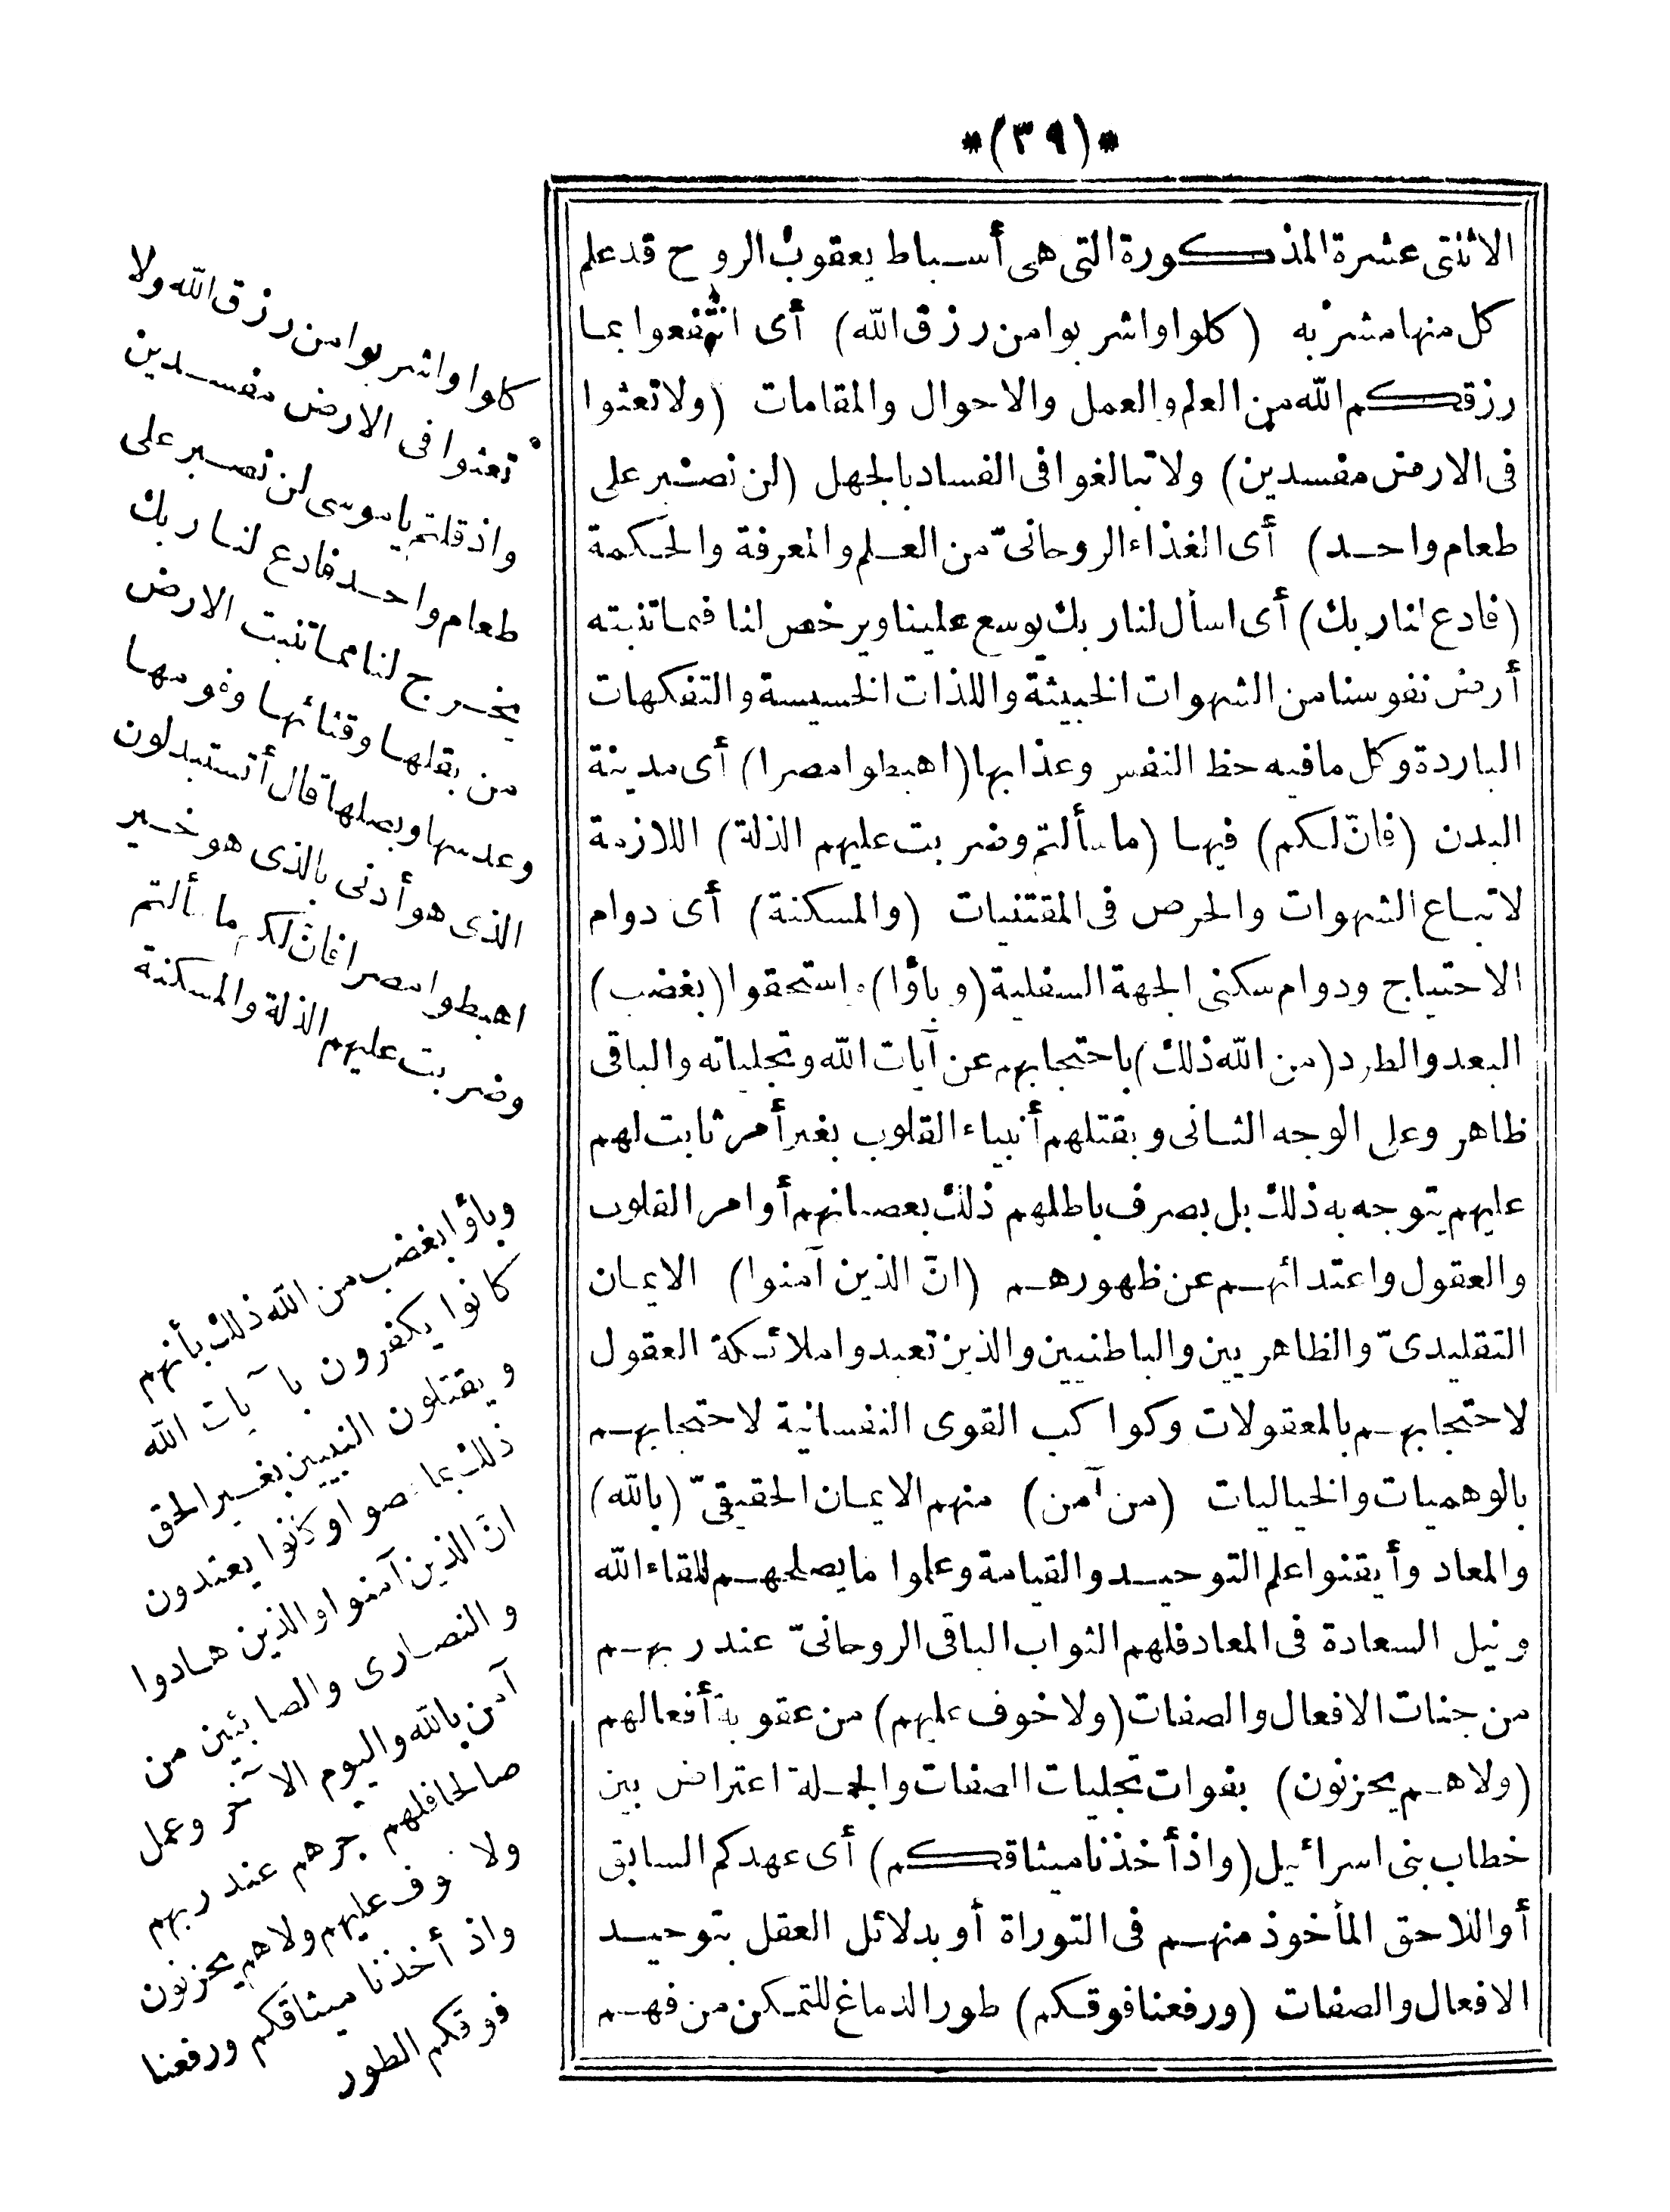 *(٣٩)*
الاثنتى عشرة المذكورة التى هى أسباط يعقوب الروح قد علم
كل منها مشربه (كلوا واشربوا من رزق الله) أى انتفعوا بما
رزقكم الله من العلم والعمل والاحوال والمقامات (ولا تعثوا
فى الارض مفسدين) ولا تبالغوا فى الفساد بالجهل (لن نصبر على
طعام واحد) أى الغذاء الروحانىّ من العلم والمعرفة والحكمة
(فادع لنا ربك) أى اسأل لنا ربك يوسع علينا ويرخص لنا فيما تنبته
أرض نفوسنا من الشهوات الخبيثة واللذات الخسيسة والتفكهات
الباردة وكل ما فيه حظ النفس وعذابها (اهبطوا مصرا) أى مدينة
البدن (فانّ لكم) فيها (ما سألتم وضربت عليهم الذلة) اللازمة
لاتباع الشهوات والحرص فى المقتنيات (والمسكنة) أى دوام
الاحتياج ودوام سكنى الجهة السفلية (وباؤا) استحقوا (بغضب)
البعد والطرد (من الله ذلك) باحتجابهم عن آيات الله وتجلياته والباقى
ظاهر وعلى الوجه الثانى وبقتلهم أنبياء القلوب بغير أمر ثابت لهم
عليهم يتوجه به ذلك بل بصرف باطلهم ذلك بعصيانهم أوامر القلوب
والعقول واعتدائهم عن ظهورهم (انّ الذين آمنوا) الايمان
التقليدىّ والظاهريين والباطنيين والذين تعبدوا ملائكة العقول
لاحتجابهم بالمعقولات وكواكب القوى النفسانية لاحتجابهم
بالوهميات والخياليات (من آمن) منهم الايمان الحقيقىّ (بالله)
والمعاد وأيقنوا علم التوحيد والقيامة وعملوا ما يصلحهم للقاء الله
ونيل السعادة فى المعاد فلهم الثواب الباقى الروحانىّ عند ربهم
من جنات الافعال والصفات (ولا خوف عليهم) من عقوبة أفعالهم
(ولا هم يحزنون) بفوات تجليات الصفات والجملة اعتراض بين
خطاب بنى اسرائيل (واذ أخذنا ميثاقكم) أى عهدكم السابق
أو اللاحق المأخوذ منهم فى التوراة أو بدلائل العقل بتوحيد
الافعال والصفات (ورفعنا فوقكم) طور الدماغ للتمكن من فهم
كلوا واشربوا من رزق الله ولا
تعثوا فى الارض مفسدين
واذ قلتم ياموسى لن نصبر على
طعام واحد فادع لنا ربك
يخرج لنا مما تنبت الارض
من بقلها وقثائها وفومها
وعدسها وبصلها قال أتستبدلون
الذى هو أدنى بالذى هو خير
اهبطوا مصرا فانّ لكم ما سألتم
وضربت عليهم الذلة والمسكنة
وباؤا بغضب من الله ذلك بأنهم
كانوا يكفرون بآيات الله
ويقتلون النبيين بغير الحق
ذلك بما عصوا وكانوا يعتدون
انّ الذين آمنوا والذين هادوا
والنصارى والصابئين من
آمن بالله واليوم الآخر وعمل
صالحا فلهم أجرهم عند ربهم
ولا خوف عليهم ولا هم يحزنون
واذ أخذنا ميثاقكم ورفعنا
فوقكم الطور